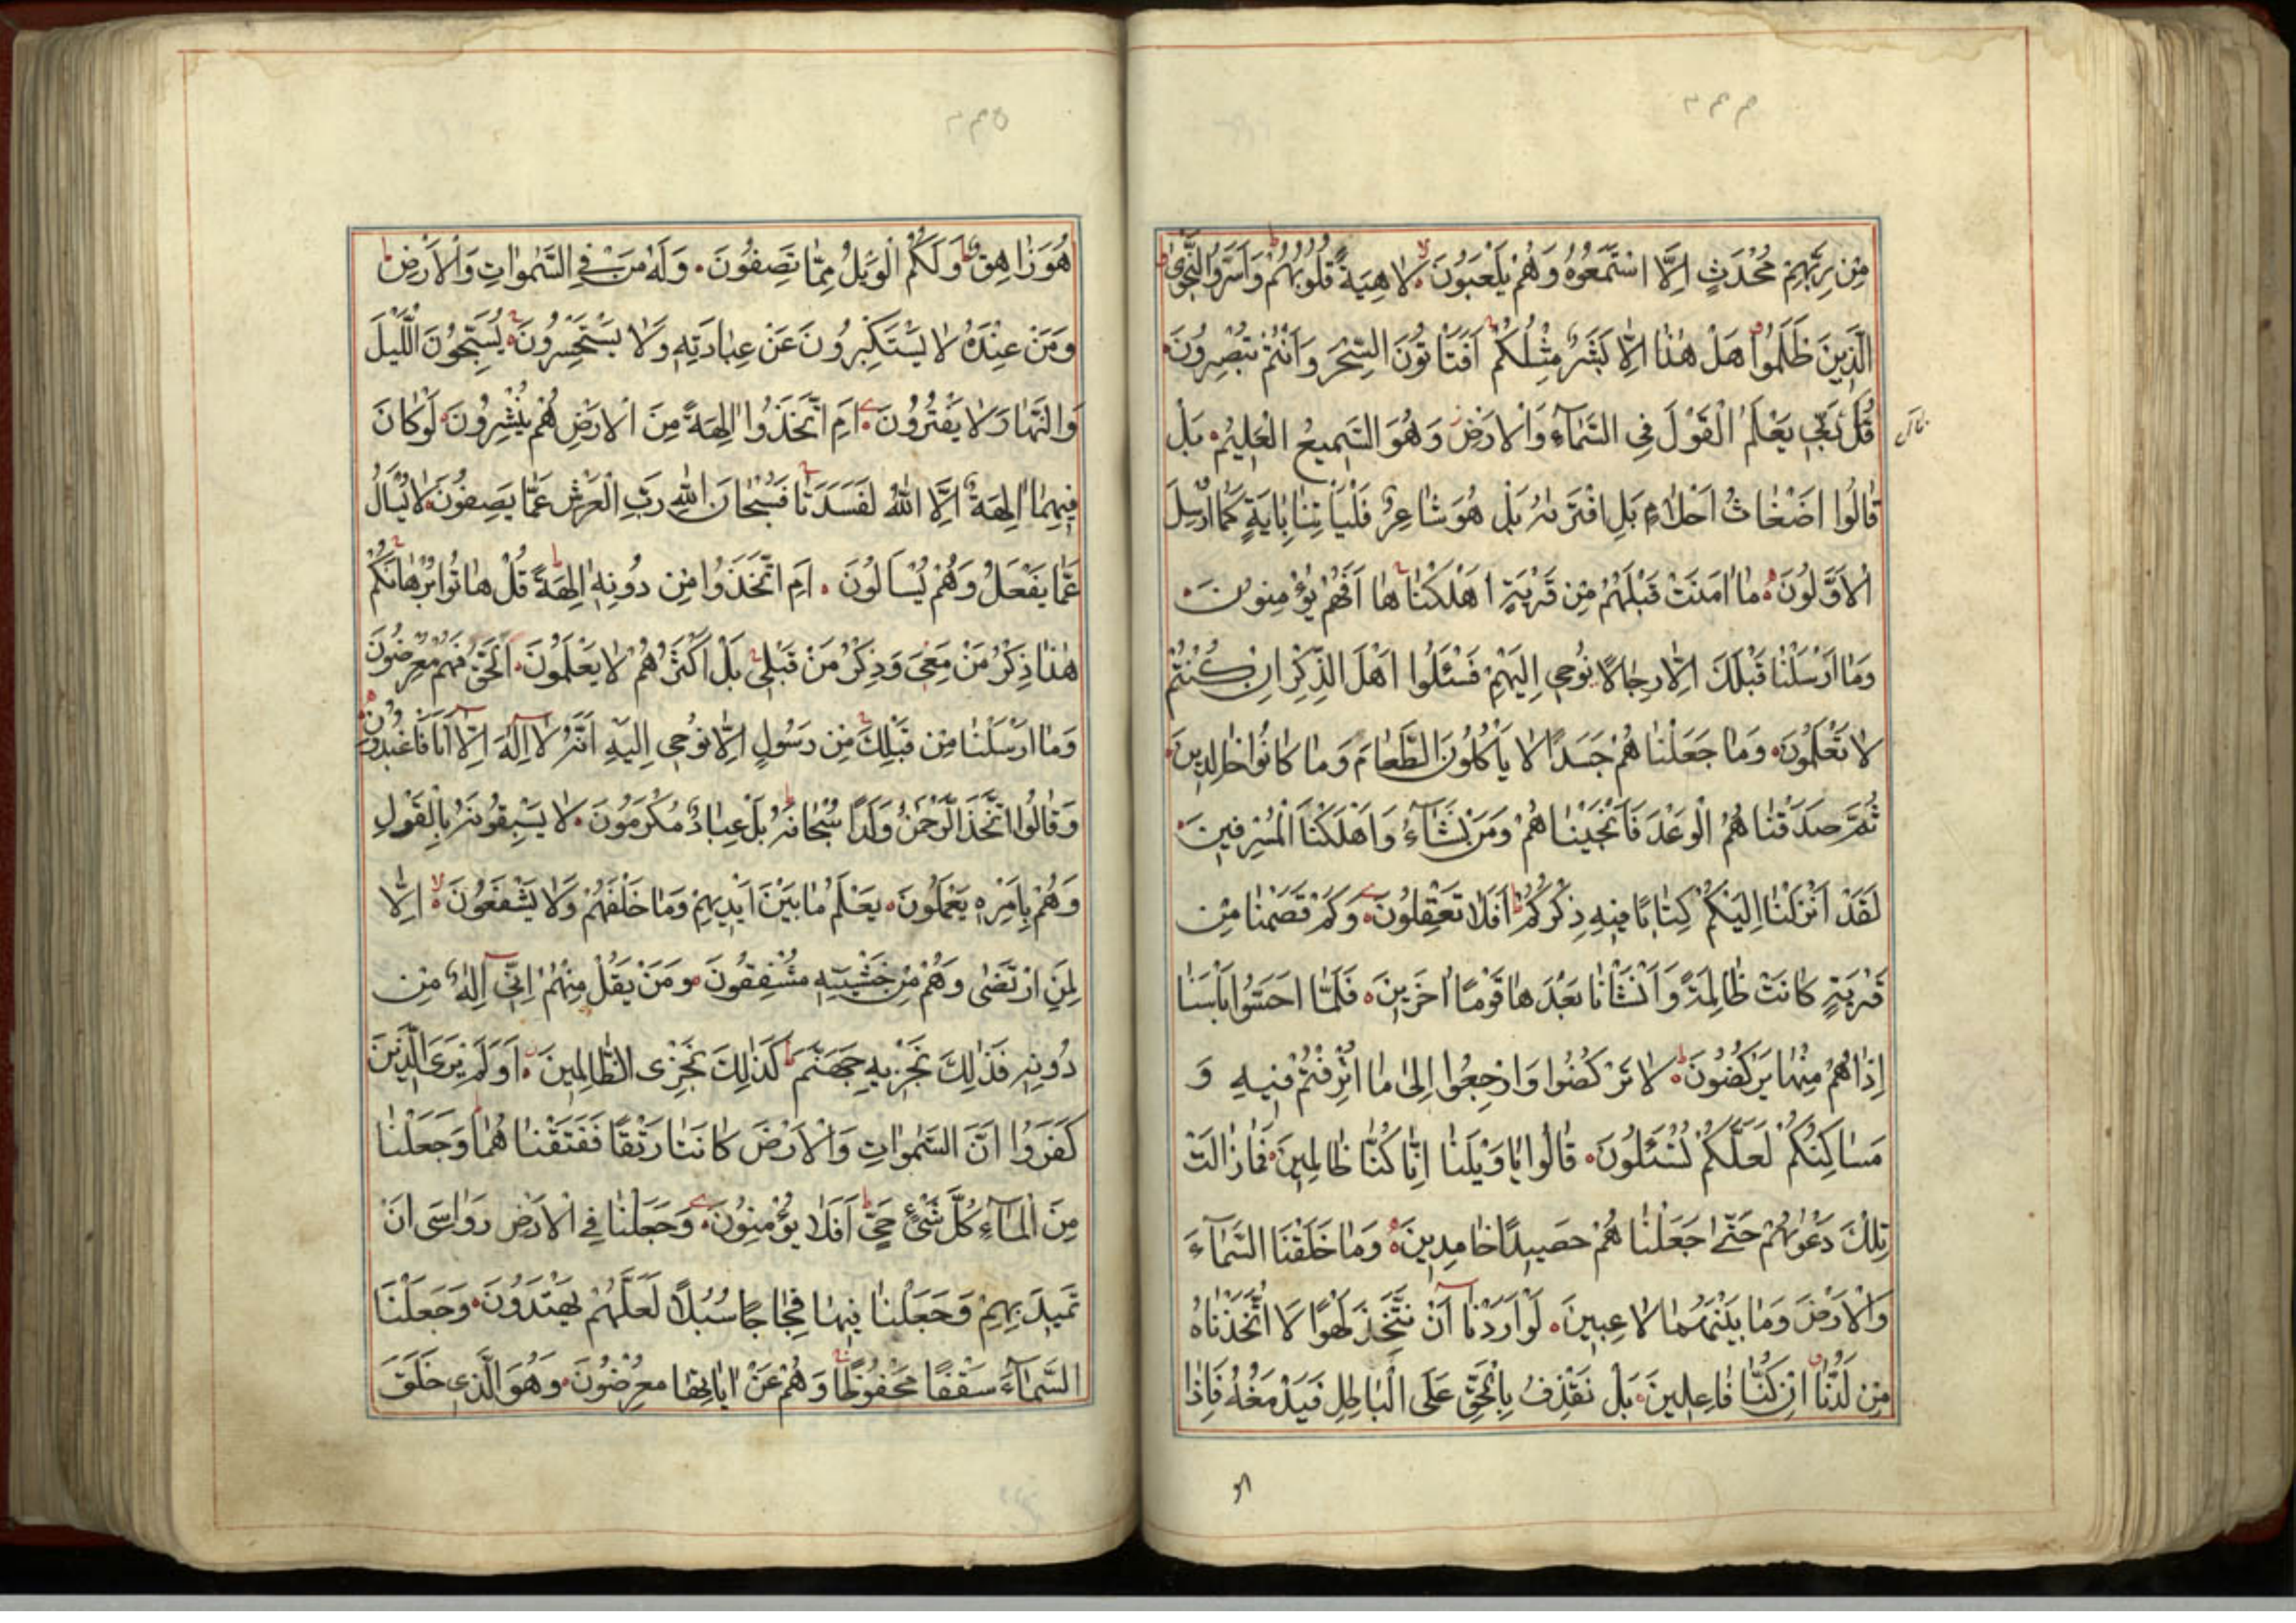 مِنْ رَبِّهِمْ مُحْدَثٍ اِلَّا اسْتَمَعُوهُ وَهُمْ يَلْعَبُونَ لَاهِيَةً قُلُوبُهُمْ وَاَسَرُّوا النَّجْوَى
الَّذِينَ ظَلَمُوا هَلْ هٰذَا اِلَّا بَشَرٌ مِثْلُكُمْ اَفَتَأْتُونَ السِّحْرَ وَاَنْتُمْ تُبْصِرُونَ
قُلْ رَبِّي يَعْلَمُ الْقَوْلَ فِي السَّمَآءِ وَالْاَرْضِ وَهُوَ السَّمِيعُ الْعَلِيمُ بَلْ
قَالُوا اَضْغَاثُ اَحْلَامٍ بَلِ افْتَرٰيهُ بَلْ هُوَ شَاعِرٌ فَلْيَأْتِنَا بِاٰيَةٍ كَمَا اُرْسِلَ
الْاَوَّلُونَ مَا اٰمَنَتْ قَبْلَهُمْ مِنْ قَرْيَةٍ اَهْلَكْنَاهَا اَفَهُمْ يُؤْمِنُونَ
وَمَا اَرْسَلْنَا قَبْلَكَ اِلَّا رِجَالًا نُوحِي اِلَيْهِمْ فَسْئَلُوا اَهْلَ الذِّكْرِ اِنْ كُنْتُمْ
لَا تَعْلَمُونَ وَمَا جَعَلْنَاهُمْ جَسَدًا لَا يَأْكُلُونَ الطَّعَامَ وَمَا كَانُوا خَالِدِينَ
ثُمَّ صَدَقْنَاهُمُ الْوَعْدَ فَاَنْجَيْنَاهُمْ وَمَنْ نَشَآءُ وَاَهْلَكْنَا الْمُسْرِفِينَ
لَقَدْ اَنْزَلْنَا اِلَيْكُمْ كِتَابًا فِيهِ ذِكْرُكُمْ اَفَلَا تَعْقِلُونَ وَكَمْ قَصَمْنَا مِنْ
قَرْيَةٍ كَانَتْ ظَالِمَةً وَاَنْشَأْنَا بَعْدَهَا قَوْمًا اٰخَرِينَ فَلَمَّا اَحَسُّوا بَأْسَنَا
اِذَا هُمْ مِنْهَا يَرْكُضُونَ لَا تَرْكُضُوا وَارْجِعُوا اِلٰى مَا اُتْرِفْتُمْ فِيهِ وَ
مَسَاكِنِكُمْ لَعَلَّكُمْ تُسْئَلُونَ قَالُوا يَا وَيْلَنَا اِنَّا كُنَّا ظَالِمِينَ فَمَا زَالَتْ
تِلْكَ دَعْوٰيهُمْ حَتّٰى جَعَلْنَاهُمْ حَصِيدًا خَامِدِينَ وَمَا خَلَقْنَا السَّمَآءَ
وَالْاَرْضَ وَمَا بَيْنَهُمَا لَاعِبِينَ لَوْ اَرَدْنَا اَنْ نَتَّخِذَ لَهْوًا لَا اتَّخَذْنَاهُ
مِنْ لَدُنَّا اِنْ كُنَّا فَاعِلِينَ بَلْ نَقْذِفُ بِالْحَقِّ عَلَى الْبَاطِلِ فَيَدْمَغُهُ فَاِذَا
هُوَ زَاهِقٌ وَلَكُمُ الْوَيْلُ مِمَّا تَصِفُونَ وَلَهُ مَنْ فِي السَّمٰوَاتِ وَالْاَرْضِ
وَمَنْ عِنْدَهُ لَا يَسْتَكْبِرُونَ عَنْ عِبَادَتِهِ وَلَا يَسْتَحْسِرُونَ يُسَبِّحُونَ اللَّيْلَ
وَالنَّهَارَ لَا يَفْتُرُونَ اَمِ اتَّخَذُوا اٰلِهَةً مِنَ الْاَرْضِ هُمْ يُنْشِرُونَ لَوْ كَانَ
فِيهِمَا اٰلِهَةٌ اِلَّا اللهُ لَفَسَدَتَا فَسُبْحَانَ اللهِ رَبِّ الْعَرْشِ عَمَّا يَصِفُونَ لَا يُسْأَلُ
عَمَّا يَفْعَلُ وَهُمْ يُسْأَلُونَ اَمِ اتَّخَذُوا مِنْ دُونِهِ اٰلِهَةً قُلْ هَاتُوا بُرْهَانَكُمْ
هٰذَا ذِكْرُ مَنْ مَعِيَ وَذِكْرُ مَنْ قَبْلِي بَلْ اَكْثَرُهُمْ لَا يَعْلَمُونَ الْحَقَّ فَهُمْ مُعْرِضُونَ
وَمَا اَرْسَلْنَا مِنْ قَبْلِكَ مِنْ رَسُولٍ اِلَّا نُوحِي اِلَيْهِ اَنَّهُ لَا اِلٰهَ اِلَّا اَنَا فَاعْبُدُونِ
وَقَالُوا اتَّخَذَ الرَّحْمٰنُ وَلَدًا سُبْحَانَهُ بَلْ عِبَادٌ مُكْرَمُونَ لَا يَسْبِقُونَهُ بِالْقَوْلِ
وَهُمْ بِاَمْرِهِ يَعْمَلُونَ يَعْلَمُ مَا بَيْنَ اَيْدِيهِمْ وَمَا خَلْفَهُمْ وَلَا يَشْفَعُونَ اِلَّا
لِمَنِ ارْتَضٰى وَهُمْ مِنْ خَشْيَتِهِ مُشْفِقُونَ وَمَنْ يَقُلْ مِنْهُمْ اِنِّي اِلٰهٌ مِنْ
دُونِهِ فَذٰلِكَ نَجْزِيهِ جَهَنَّمَ كَذٰلِكَ نَجْزِى الظَّالِمِينَ اَوَلَمْ يَرَى الَّذِينَ
كَفَرُوا اَنَّ السَّمٰوَاتِ وَالْاَرْضَ كَانَتَا رَتْقًا فَفَتَقْنَاهُمَا وَجَعَلْنَا
مِنَ الْمَآءِ كُلَّ شَيْءٍ حَيٍّ اَفَلَا يُؤْمِنُونَ وَجَعَلْنَا فِي الْاَرْضِ رَوَاسِىَ اَنْ
تَمِيدَ بِهِمْ وَجَعَلْنَا فِيهَا فِجَاجًا سُبُلًا لَعَلَّهُمْ يَهْتَدُونَ وَجَعَلْنَا
السَّمَآءَ سَقْفًا مَحْفُوظًا وَهُمْ عَنْ اٰيَاتِهَا مُعْرِضُونَ وَهُوَ الَّذِي خَلَقَ